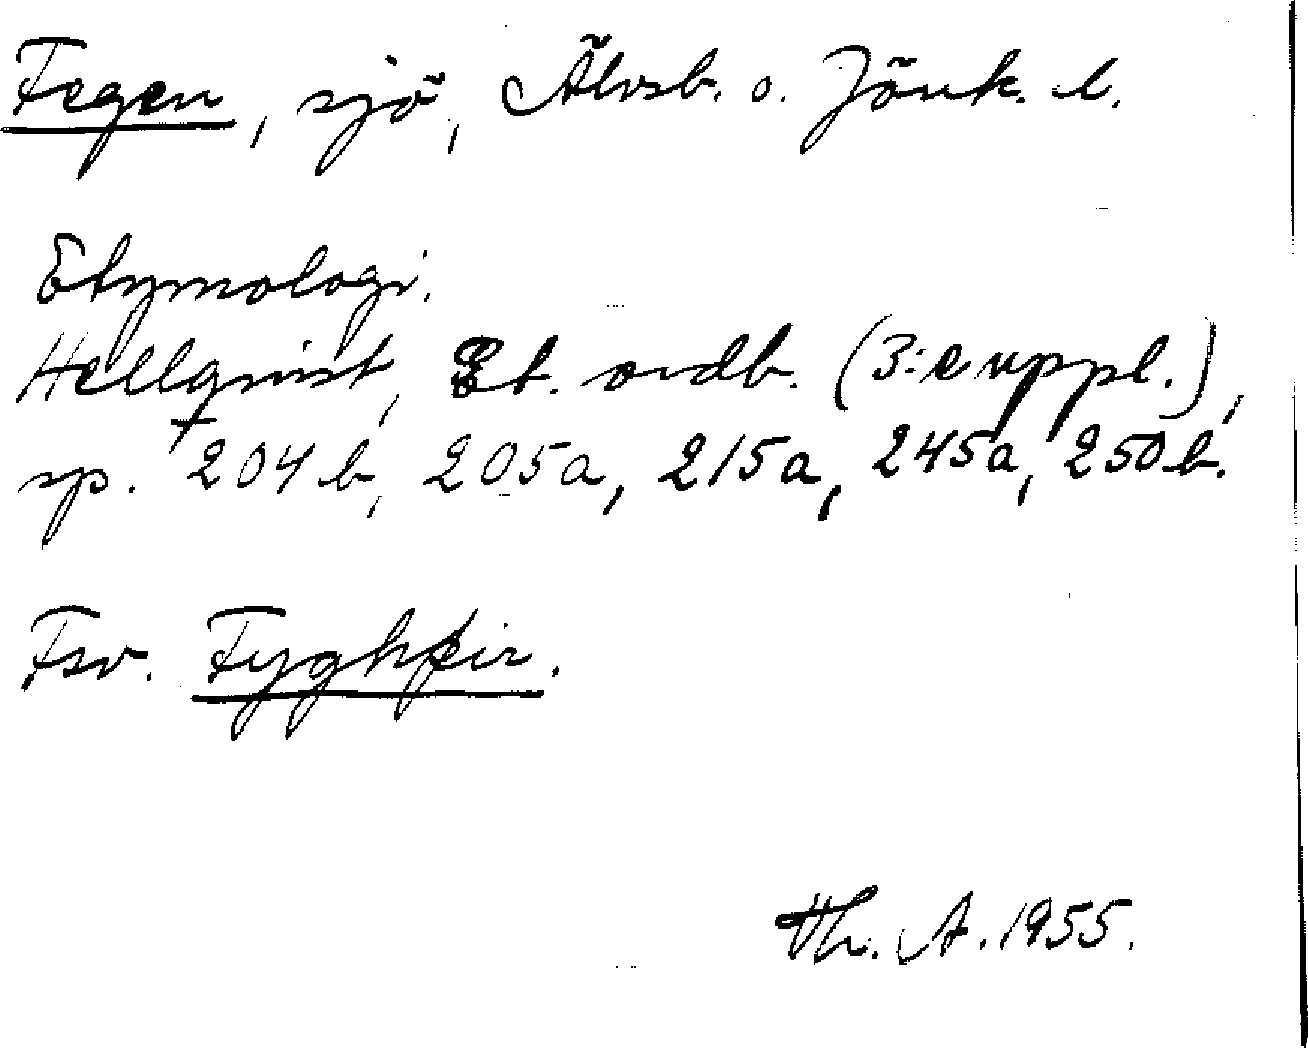 Fegen, sjö, Älvsb. o. Jönk. l.
Etymologi.
Hellqvist, Et. ordb. (3:e uppl.),
sp. 204b, 205a, 215a, 245a, 250b.
Fsv. Fyghþir.
Th. A. 1955.